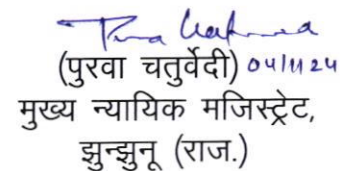 (पुरवा चतुर्वेदी) 04/11/24
मुख्य न्यायिक मजिस्ट्रेट,
झुन्झुनू (राज.)